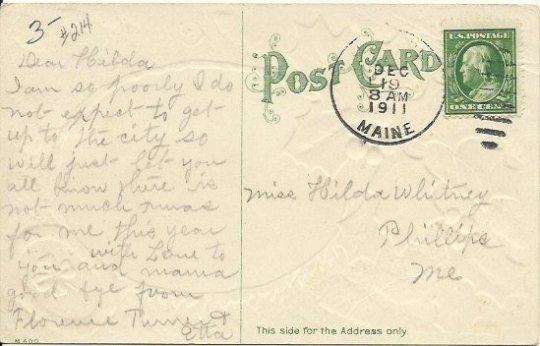 3- #214
Dear Hilda
I am so poorly I do
not expect to get
up to the city so
will just let you
all know there is
not much xmas
for me this year
with Love to
you and mama
good bye from
Florence Turner &
Etta
M 600
POST CARD
DEC
19
8 AM
1911
MAINE
U.S. POSTAGE
ONE CENT
Miss Hilda Whitney
Phillips
Me
This side for the Address only.